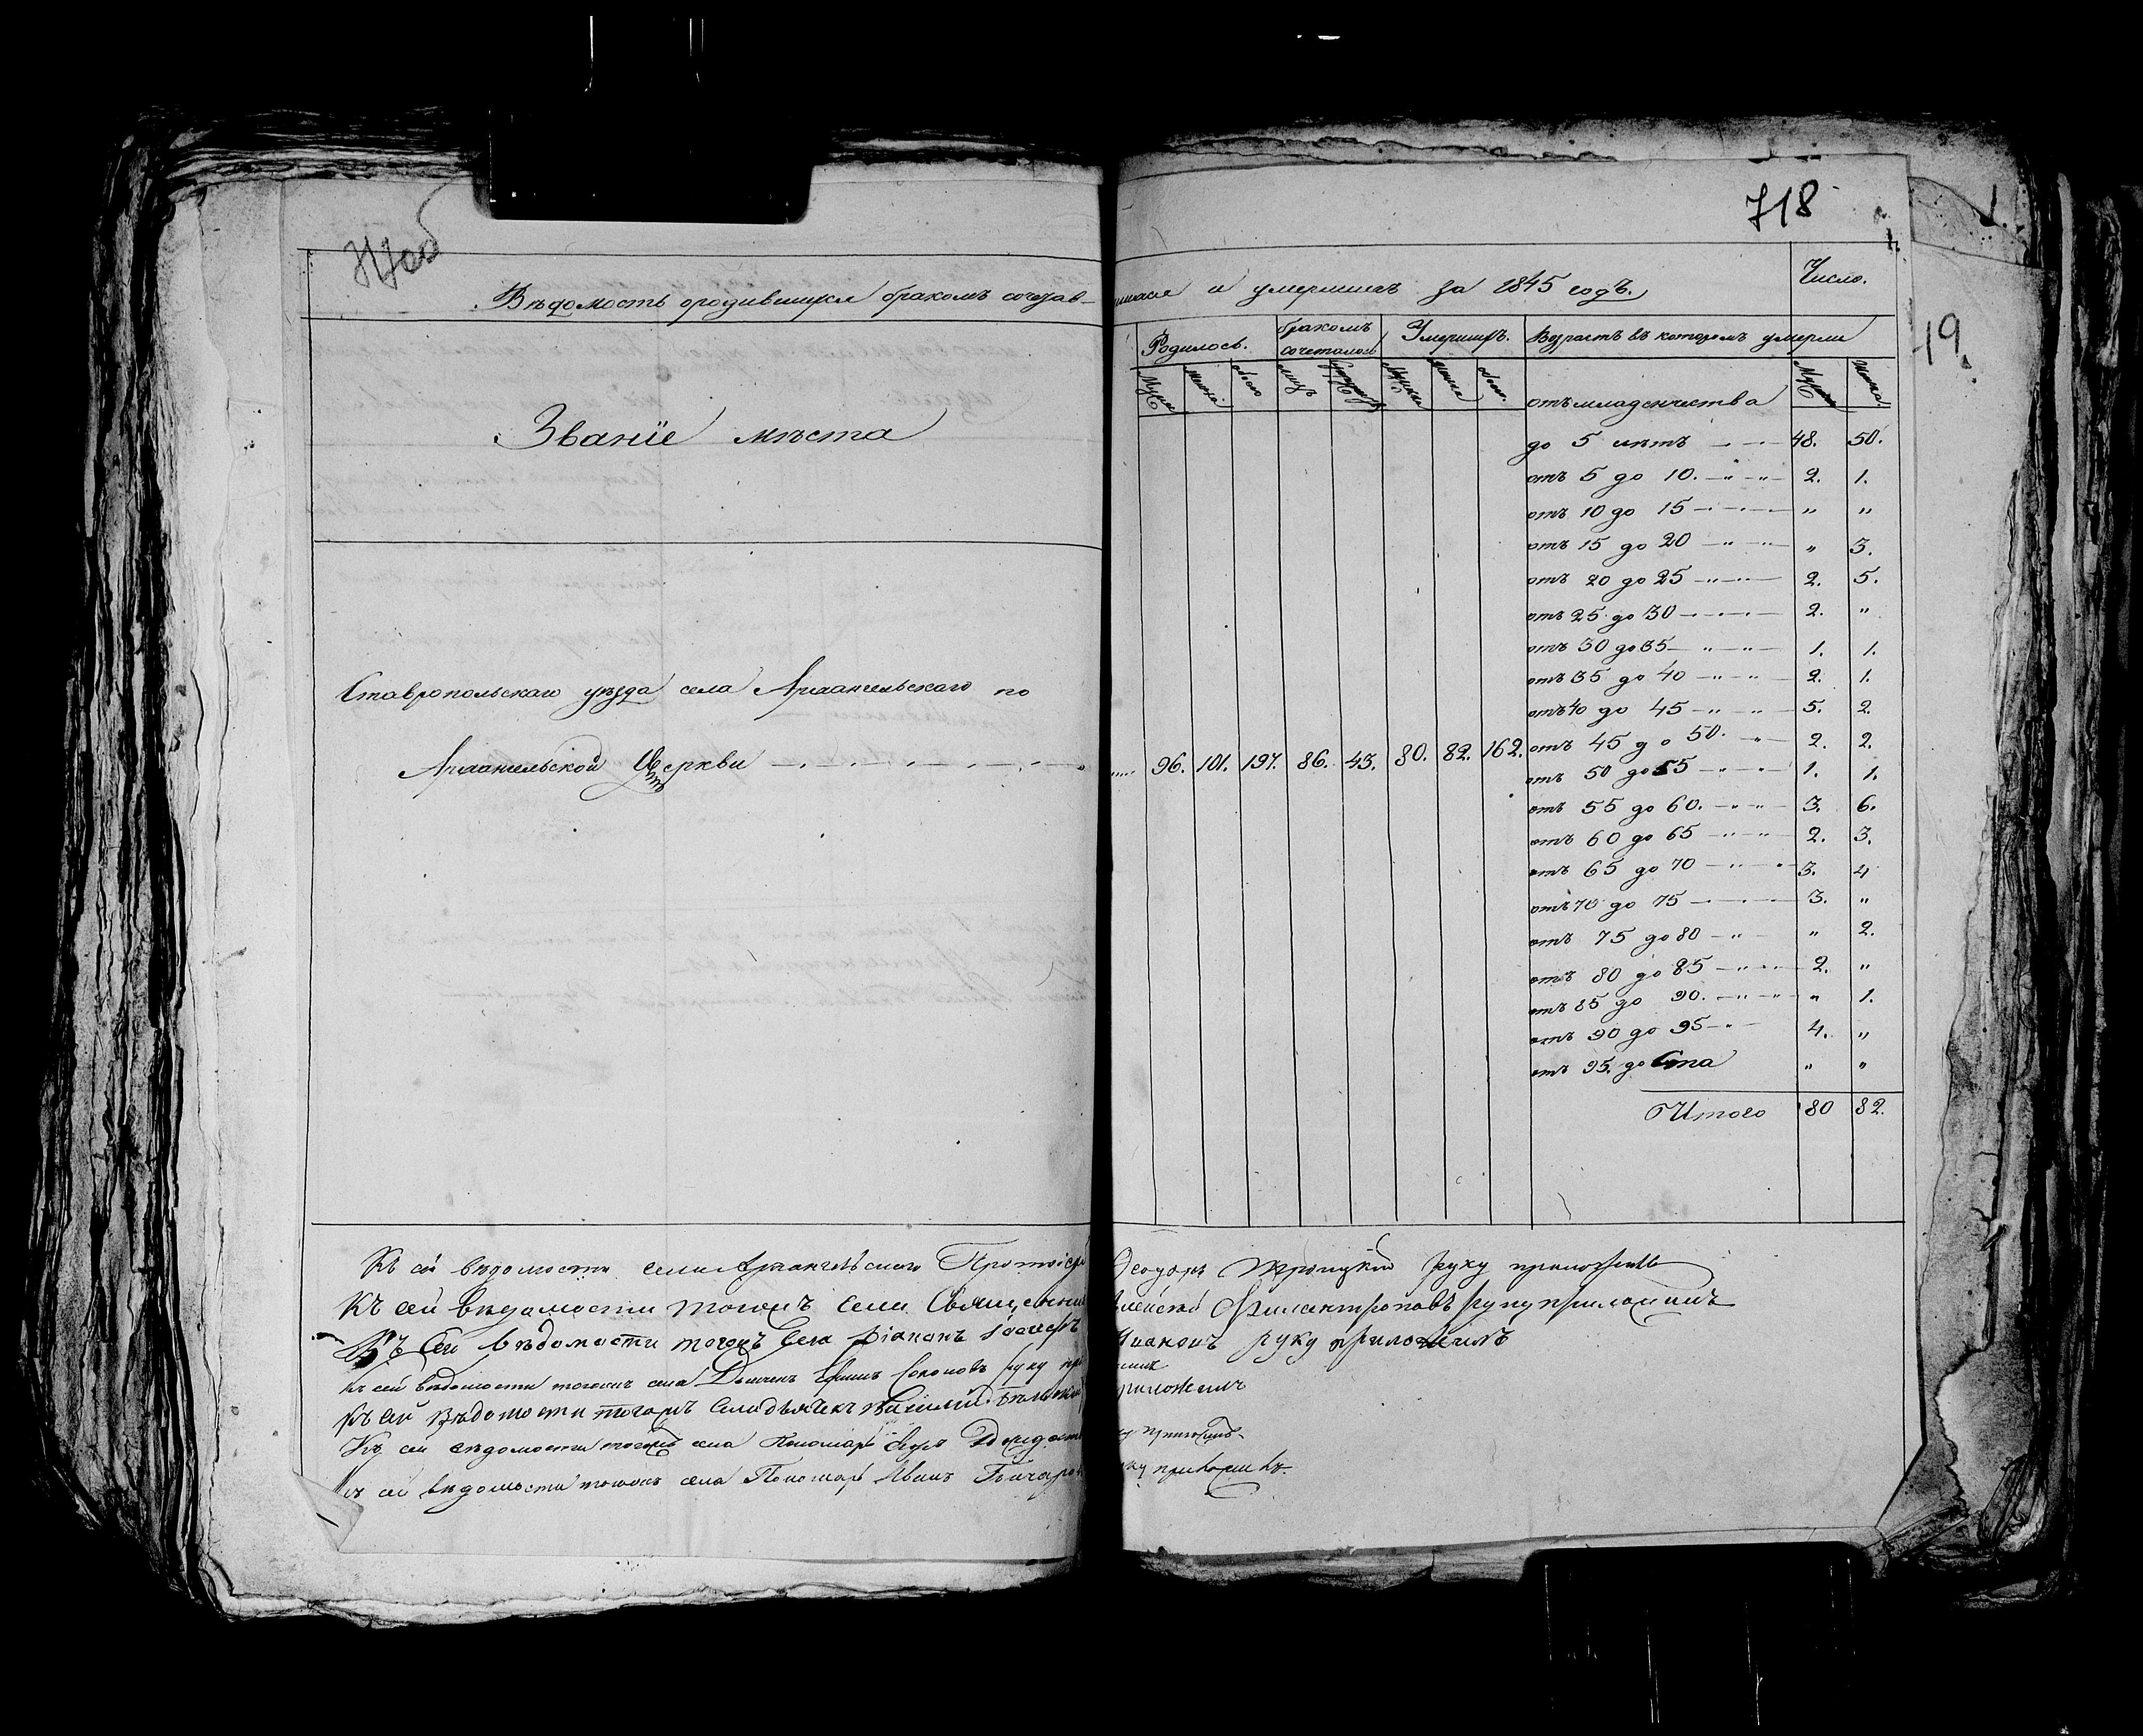 718
19.
Вѣдомость ородившихся бракомъ сочетав-
шихся и умершихъ за 1845 годъ.
Число.
Званіе мѣста
Родилось.
бракомъ сочеталось
Умершихъ.
Возрастъ въ которомъ умерли
отъ младенчества
до 5 лѣтъ 48. 50.
отъ 5 до 10. 2. 1.
отъ 10 до 15 " "
отъ 15 до 20 " 3.
отъ 20 до 25 2. 5.
отъ 25 до 30 2. "
отъ 30 до 35 1. 1.
отъ 35 до 40 2. 1.
отъ 40 до 45 5. 2.
отъ 45 до 50. 2. 2.
отъ 50 до 55 1. 1.
отъ 55 до 60. 3. 6.
отъ 60 до 65 2. 3.
отъ 65 до 70 3. 4
отъ 70 до 75 3. "
отъ 75 до 80 " 2.
отъ 80 до 85 2. "
отъ 85 до 90. " 1.
отъ 90 до 95 4. "
отъ 95. до Ста " "
Итого 80 82.
Ставропольскаго уѣзда села Архангельскаго по
Архангельской Церкви 96. 101. 197. 86. 43. 80. 82. 162.
Къ сей вѣдомости села Архангельскаго Протоіерей Ѳеодоръ Троицкій руку приложилъ
Къ сей вѣдомости тогожъ села Священникъ Филантроповъ руку приложилъ
Къ Сей вѣдомости тогожъ Села Діаконъ руку приложилъ
Къ сей вѣдомости тогожъ села Соколовъ руку
Къ сей Вѣдомости тогожъ села дьячекъ Василий приложилъ
Къ сей вѣдомости тогожъ села Пономарь приложилъ
Къ сей вѣдомости тогожъ села Пономарь Иванъ приложилъ.